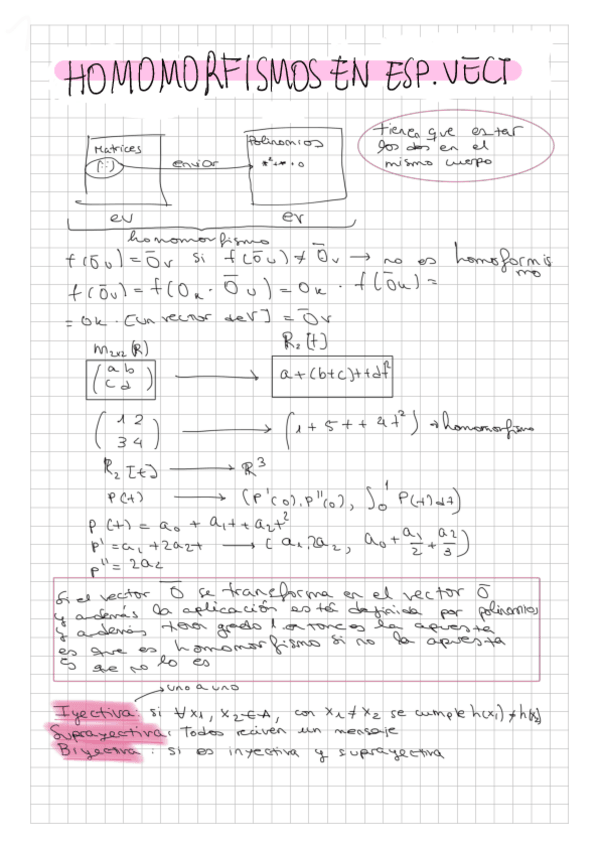 HOMOMORFISMOS EN ESP.VECT
Matrices
enviar
Polinomios
tienen que estar
los dos en el
mismo cuerpo
ev
ev
homomorfismo
f(0̄u) = 0̄v si f(0̄u) ≠ 0̄v → no es homoformis
mo
f(0̄u) = f(0k · 0̄u) = 0k · f(0̄u) =
= 0k · [un vector de V] = 0̄v
M2x2(R)
R2[t]
(a b
c d)
→ a+(b+c)t+dt²
(1 2
3 4)
→ (1+5t+4t²) → homomorfismo
R2[t] → R³
P(t) → (P'(0), P''(0), ∫₀¹ P(t)dt)
P(t) = a0 + a1t + a2t²
P' = a1 + 2a2t → (a1, 2a2, a0 + a1/2 + a2/3)
P'' = 2a2
Si el vector 0̄ se transforma en el vector 0̄
y además la aplicación está definida por polinomios
y además tienen grado 1 entonces la apuesta
es que es homomorfismo si no la apuesta
es que no lo es
→ uno a uno
Iyectiva: si ∀x1, x2 ∈ A, con x1 ≠ x2 se cumple h(x1) ≠ h(x2)
Suprayectiva: Todos reciven un mensaje
Biyectiva: si es inyectiva y suprayectiva